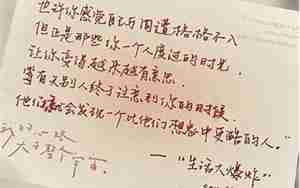 也许你感觉自己与周遭格格不入
但正是那些你一个人度过的时光，
让你变得越来越有意思。
等有天别人终于注意到你的时候，
他们就会发现一个比他们想象中更酷的人。"
——"生活大爆炸"